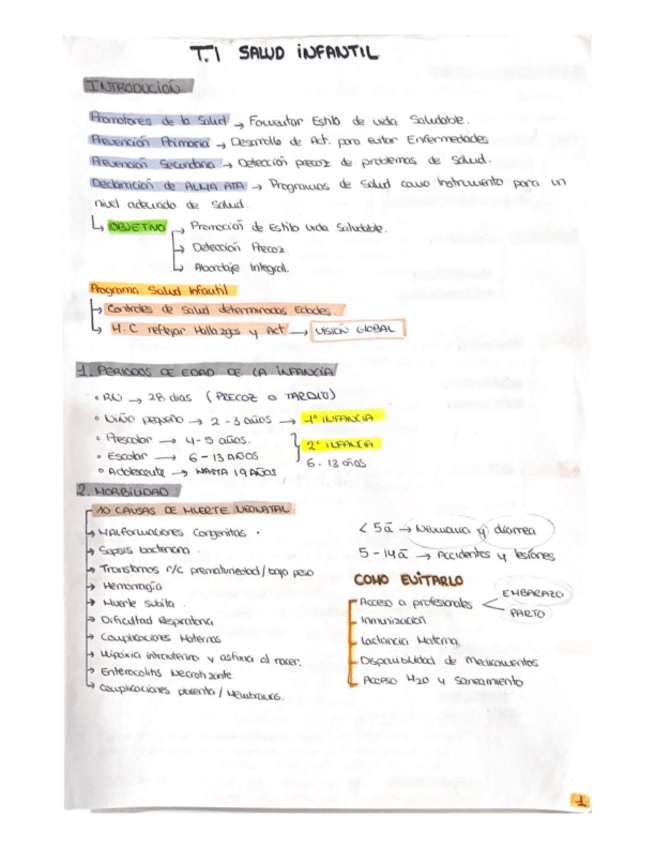 T.1 SALUD INFANTIL
INTRODUCION
Promotores de la Salud → Fomentar Estilo de vida Saludable.
Prevención Primaria → Desarrollo de Act. para evitar Enfermedades
Prevención Secundaria → Detección precoz de problemas de Salud.
Declaración de ALMA ATA → Programas de Salud como Instrumento para un
nivel adecuado de Salud.
↳ OBJETIVO → Promoción de Estilo vida Saludable.
→ Detección Precoz
→ Abordaje Integral.
Programa Salud Infantil
→ Controles de Salud determinadas Edades.
→ H.C reflejar Hallazgos y Act → VISIÓN GLOBAL
1. PERIODOS DE EDAD DE LA INFANCIA
• RN → 28 dias (PRECOZ O TARDIO)
• Niño pequeño → 2 - 3 años → 1ª INFANCIA
• Prescolar → 4-5 años.
• Escolar → 6 - 13 AÑOS
2ª INFANCIA
6 - 13 años
• Adolescente → HASTA 19 AÑOS
2. MORBILIDAD
10 CAUSAS DE MUERTE NEONATAL
→ Malformaciones Congenitas.
→ Sepsis bacteriana.
→ Transtornos r/c prematuriedad/bajo peso
→ Hemorragía
→ Muerte subita.
→ Dificultad Respiratoria
→ Complicaciones Maternas
→ Hipoxia intrauterina y asfixia al nacer.
→ Enterocolitis Necrotizante.
→ Complicaciones placenta / Membranas.
< 5ā → Neumonia y diarrea
5 - 14ā → Accidentes y lesiones
COMO EVITARLO
Acceso a profesionales < EMBARAZO
PARTO
Inmunización
Lactancia Materna
Disponibilidad de Medicamentos
Acceso H2O y Saneamiento
1